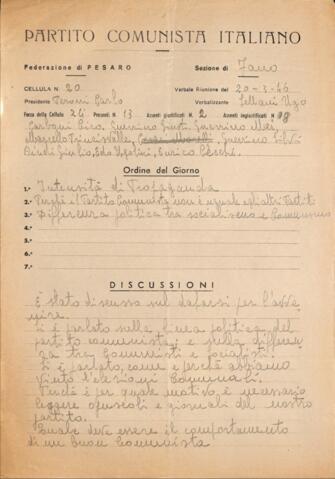 PARTITO COMUNISTA ITALIANO
Federazione di PESARO Sezione di Fano
CELLULA N. 20 Verbale Riunione del 20-3-46
Presidente Carlo Verbalizzante Ugo
Forza della Cellula 24 Presenti N. 13 Assenti giustificati N. 2 Assenti ingiustificati N.
Guerrino Giusti, Guerrino
Marcello Guerrino
Giulio, Edo Ugolini, Enrico
Ordine del Giorno
1.° Intensità di Propaganda
2.° Perchè il Partito Comunista non è uguale agli altri Partiti
3.° Differenza politica tra socialismo e Comunismo
4.°
5.°
6.°
7.°
DISCUSSIONI
È stato discusso sul da farsi per l'avve
nire.
Si è parlato sulla linea politica del
partito comunista; e sulla differen
za tra Comunisti e Socialisti.
Si è parlato, come e perchè abbiamo
vinto l'elezioni Comunali.
Perchè e per quale motivo è necessario
leggere opuscoli e giornali del nostro
partito.
Quale deve essere il comportamento
di un buon Comunista